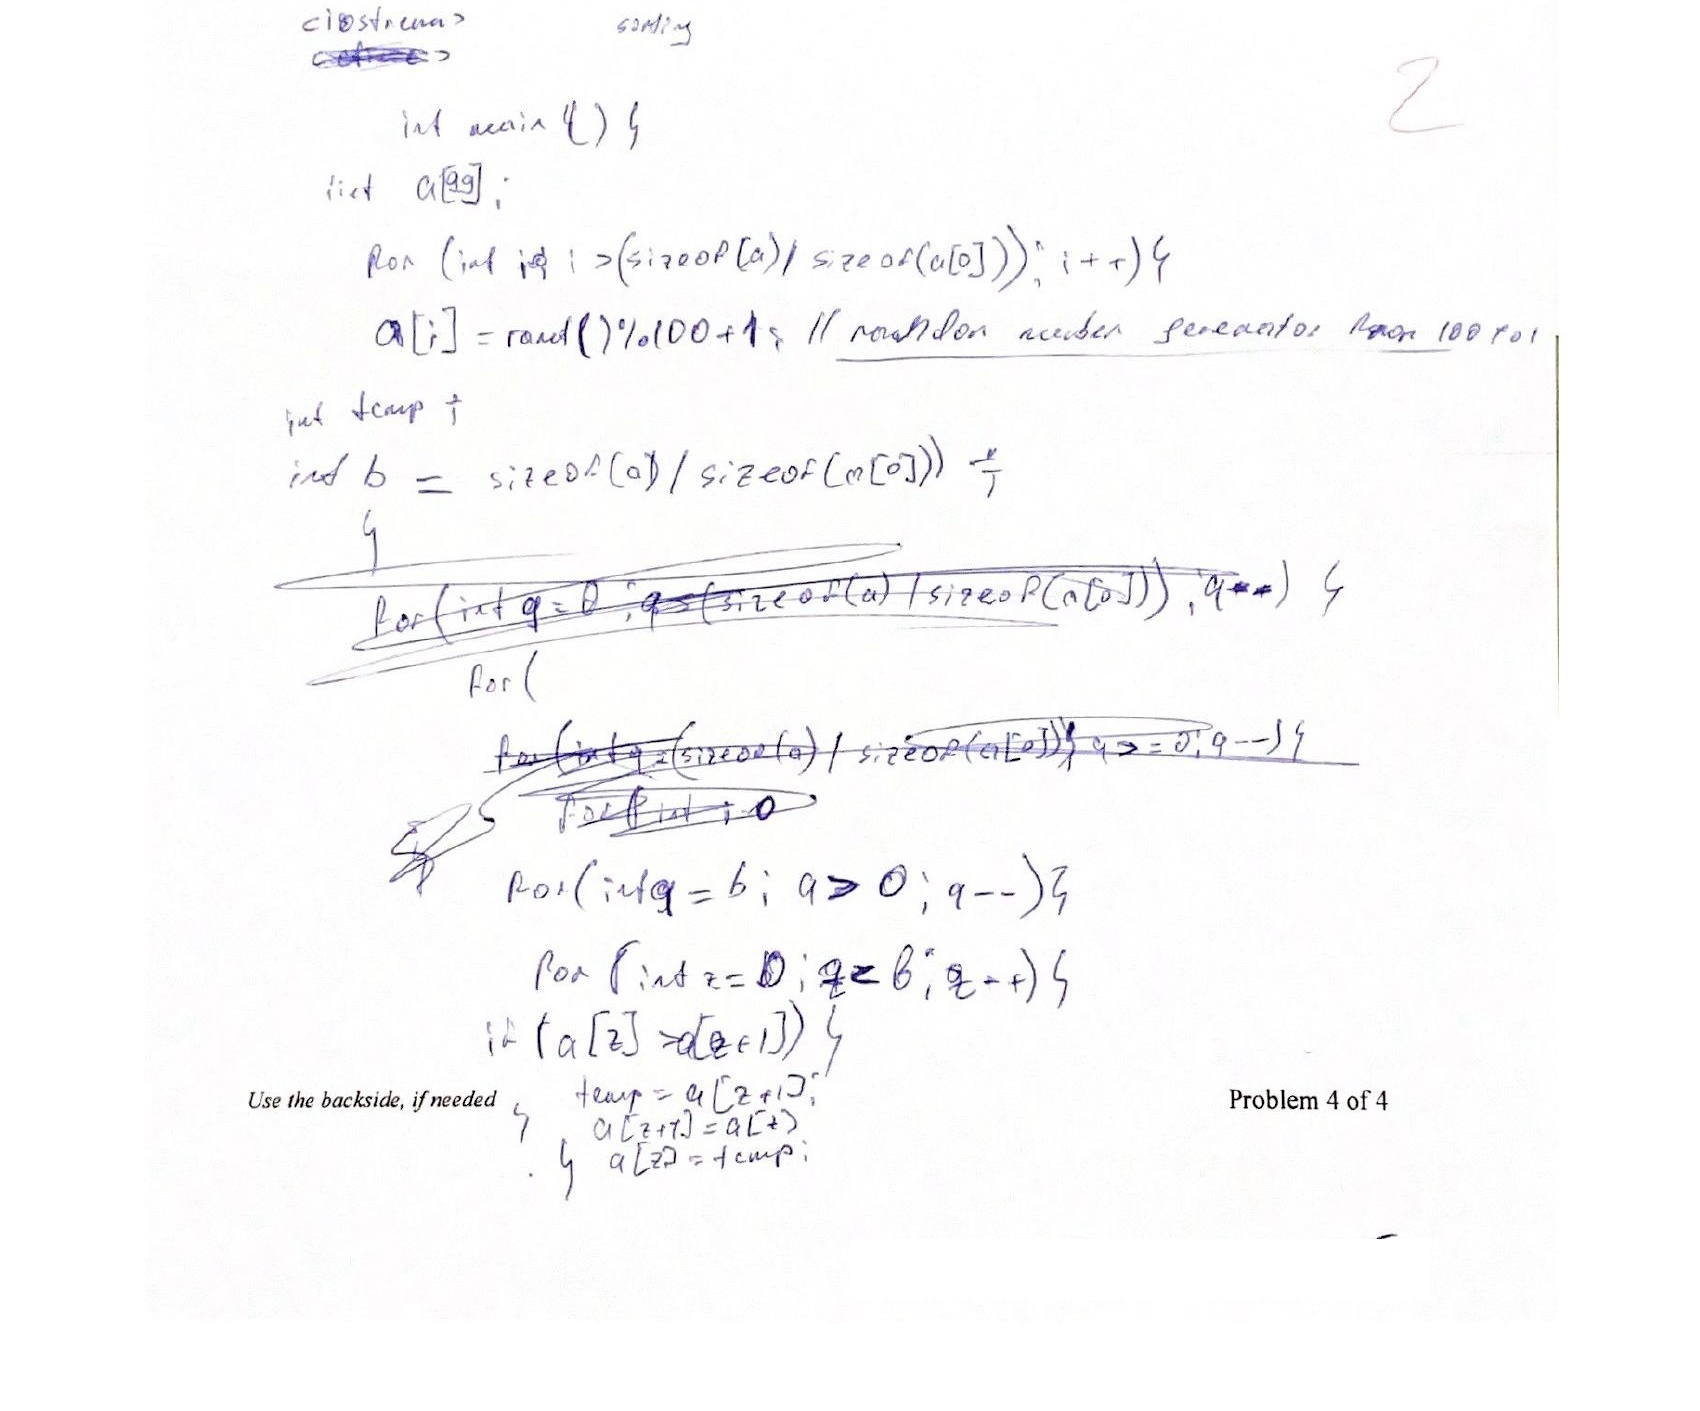 <iostream> sorting
2
int main () {
int a[99];
for (int i=0 i >(sizeof(a)/ sizeof(a[0])); i++) {
a[i] = rand()%100+1; // random number generator from 100 to 1
int temp ;
int b = sizeof(a)/ sizeof(a[0])) ;
}
for(int q=0; q>(sizeof(a) / sizeof(a[0])); q--) {
for(
for(int q=(sizeof(a) / sizeof(a[0])); q>=0; q--) {
for(int i 0
for(int q = b; q > 0; q--){
for (int z=0; z< b; z++) {
if (a[z] >a[z+1]) {
temp = a[z+1];
Use the backside, if needed Problem 4 of 4
} a[z+1] = a[z]
} a[z] = temp;